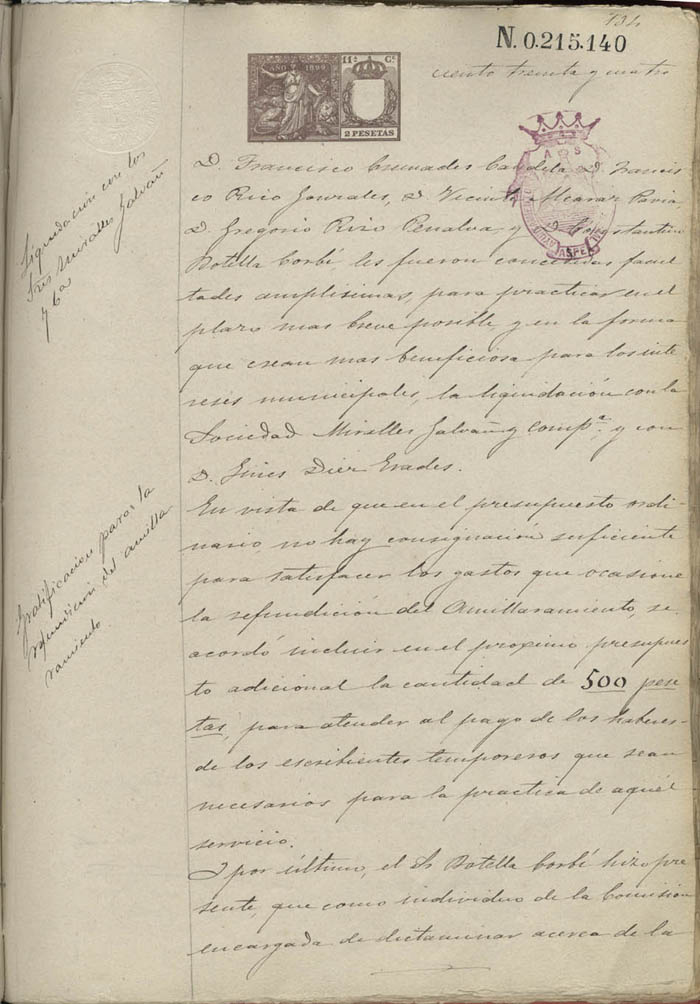 134
N. 0.215.140
AÑO 1899
11ª C.
2 PESETAS
ciento treinta y cuatro
ASPE
Liquidacion con los
Sres Miralles Galvañ
y Cª
D. Francisco Cremades Candela, D. Francis
co Rico Gonzales, D. Vicente Alcaraz Pavia,
D. Gregorio Rizo Penalva, y D. Constantino
Botella Corbí les fueron concedidas facul
tades amplisimas, para practicar en el
plazo mas breve posible, y en la forma
que crean mas beneficiosa para los inte
reses municipales, la liquidación con la
Sociedad Miralles Galvañ y Compª. y con
D. Ginés Dier Erades.
Gratificacion para la
refundicion del amilla
ramiento
En vista de que en el presupuesto ordi
nario, no hay consignación suficiente
para satisfacer los gastos que ocasione
la refundición del Amillaramiento, se
acordó incluir en el proximo presupues
to adicional la cantidad de 500 pese
tas, para atender al pago de los haberes
de los escribientes temporeros que sean
necesarios para la practica de aquél
servicio.
I por último, el Sr Botella Corbí hizo pre
sente, que como individuo de la Comisión
encargada de dictaminar acerca de la